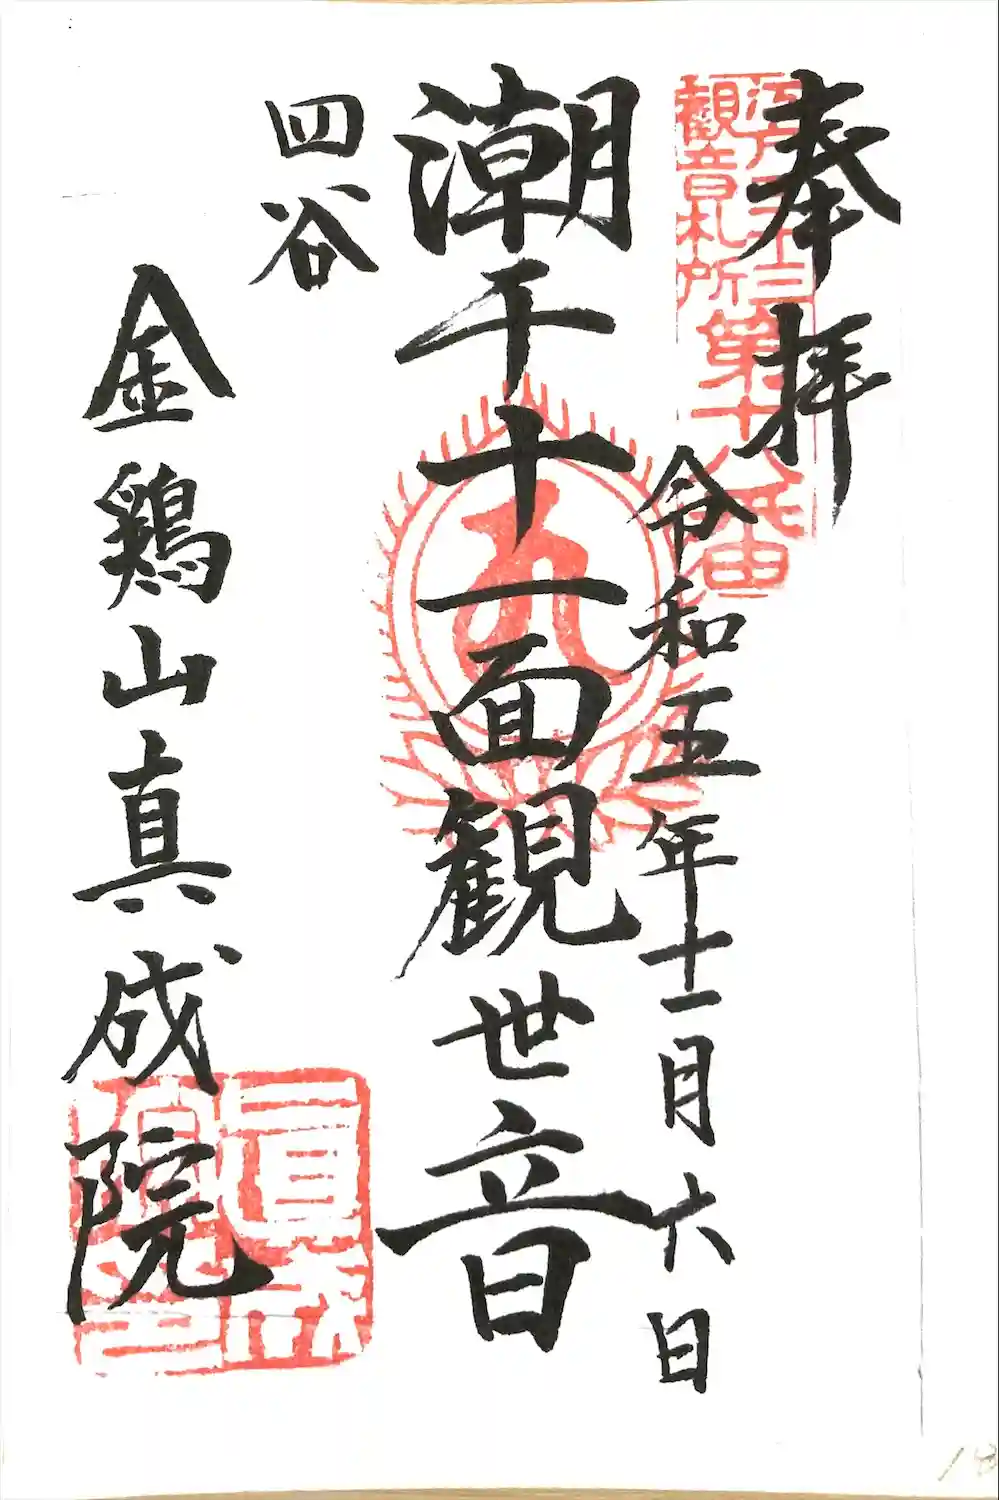 奉拝
江戸三十三
観音札所
第十八番
令和五年十一月六日
潮干十一面観世音
四谷
金鶏山真成院
18